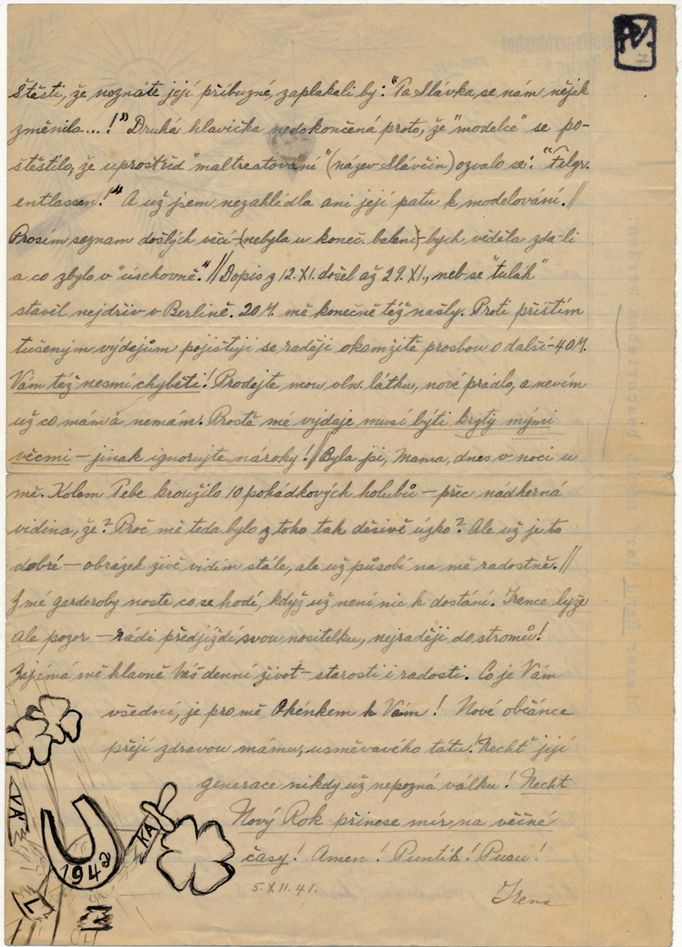 štěstí, že neznáte její příbuzné, zaplakali by: "Ta Slávka se nám nějak
změnila...!" Druhá hlavička nedokončená proto, že "modelce" se po-
štěstilo, že uprostřed "maltreatování" (název Slávčin) ozvalo se: "Felgr.
entlassen!" A už jsem nezahlédla ani její patu k modelování. //
Prosím seznam došlých věcí - (nebyla u koneč. balení) - bych věděla zda-li
a co zbylo v "úschovně." // Dopis z 12. XI. došel až 29. XI., neb se "tulák"
stavil nejdřív v Berlíně. 20 M. mě konečně též našly. Proti příštím
tušeným výdajům pojistiji se raději okamžitě prosbou o další - 40 M.
Vám též nesmí chyběti! Prodejte mou vln. látku, nové prádlo, a nevím
už co mám a nemám. Prostě mé výdaje musí býti kryty mými
věcmi - jinak ignorujte nároky! // Byla jsi, Mama, dnes v noci u
mě. Kolem Tebe kroužilo 10 pohádkových holubů - přec nádherná
vidina, že? Proč mě teda bylo z toho tak děsivě úzko? Ale už je to
dobré - obrázek živě vidím stále, ale už působí na mě radostně. //
Z mé garderoby noste co se hodí, když už není nic k dostání. Irence lyže
ale pozor - rádi předjíždí svou nositelku, nejraději do stromů!
Zajímá mě hlavně Váš denní život - starosti i radosti. Co je Vám
všední, je pro mě Okénkem k Vám! Nové občánce
přeji zdravou mámu, usměvavého tátu. Nechť její
generace nikdy už nepozná válku! Nechť
Nový Rok přinese mír, na věčné
časy! Amen! Puntík! Pusu!
5. XII. 41.
Irena
1942
KA